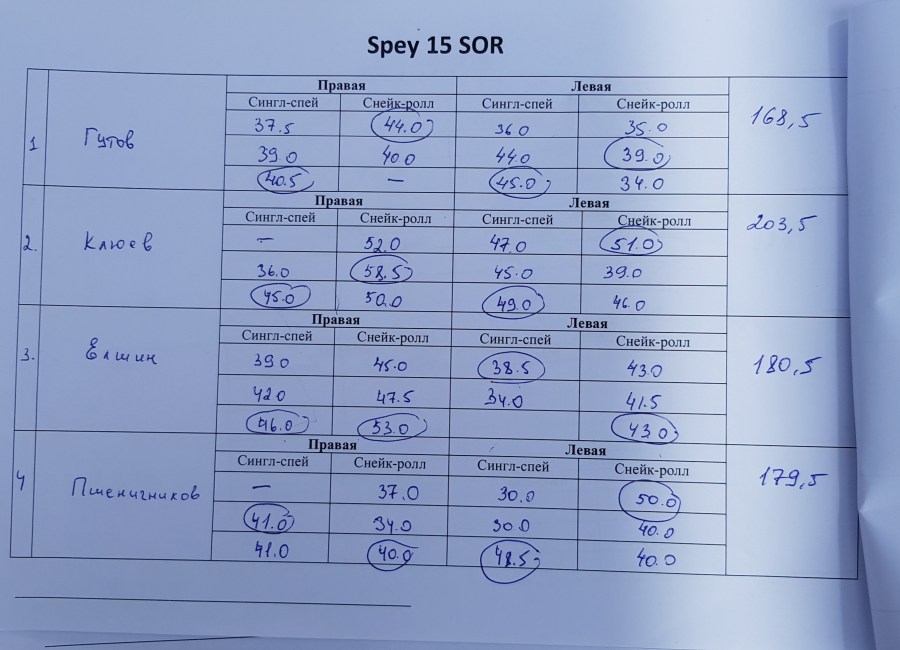 Spey 15 SOR
Правая Левая
Сингл-спей Снейк-ролл Сингл-спей Снейк-ролл
1 Гутов 37.5 44.0 36.0 35.0 168,5
39.0 40.0 44.0 39.0
40.5 — 45.0 34.0
Правая Левая
Сингл-спей Снейк-ролл Сингл-спей Снейк-ролл
2. Клюев — 52.0 47.0 51.0 203,5
36.0 58.5 45.0 39.0
45.0 50.0 49.0 46.0
Правая Левая
Сингл-спей Снейк-ролл Сингл-спей Снейк-ролл
3. Елшин 39.0 45.0 38.5 43.0 180,5
42.0 47.5 34.0 41.5
46.0 53.0 43.0
Правая Левая
Сингл-спей Снейк-ролл Сингл-спей Снейк-ролл
4 Пшеничников — 37.0 30.0 50.0 179,5
41.0 34.0 30.0 40.0
41.0 40.0 48.5 40.0